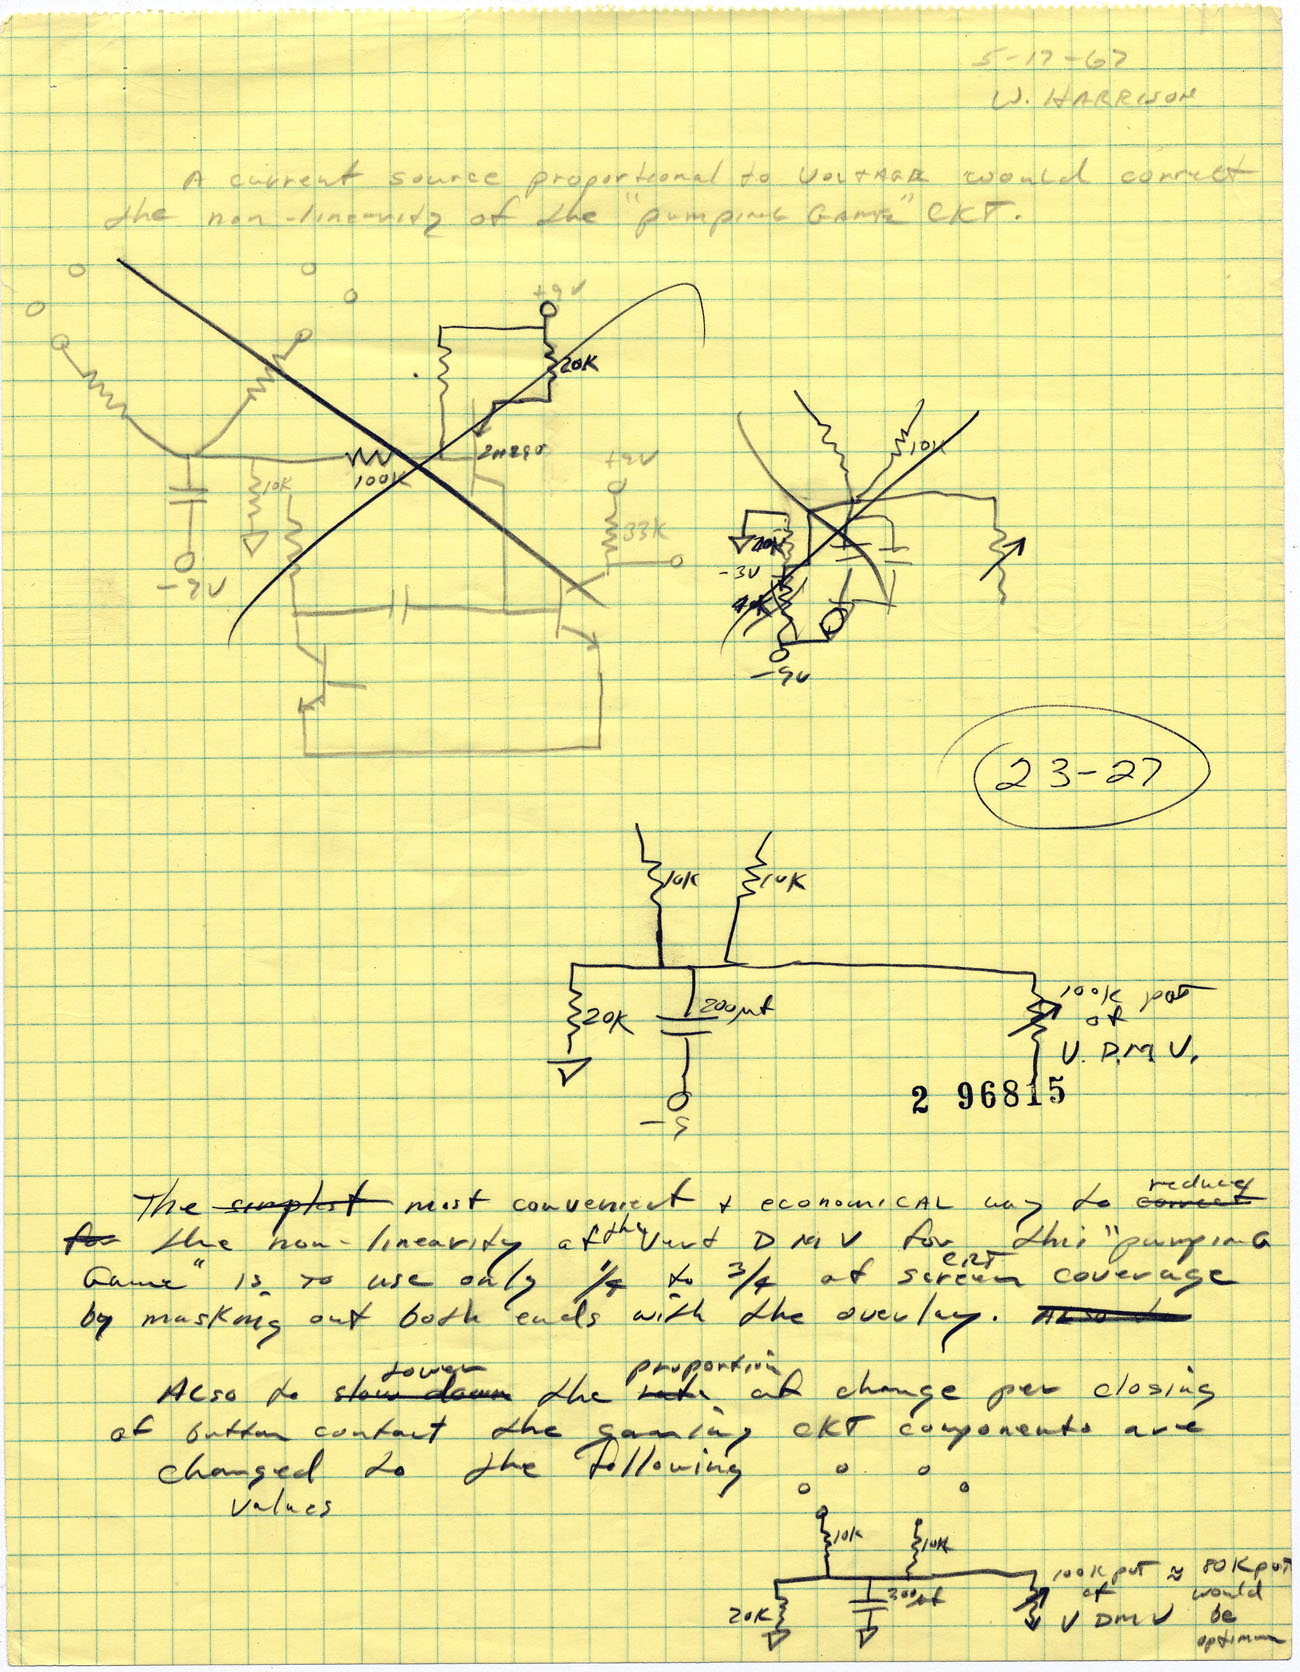 5-17-67
W. HARRISON
A current source proportional to VOLTAGE would correct
the non-linearity of the "pumping GAME" CKT.
+9V
20K
2N290
100K
10K
+9V
33K
-9V
10K
20K
-3V
-9V
23-27
10K
10K
20K
200µf
100K pot
of
V. DMV.
-9
2 96815
The simplest most convenient & ECONOMICAL way to correct reduce
for the non-linearity of the Vert DMV for this "pumping
Game" is to use only 1/4 to 3/4 of screen CRT coverage
by masking out both ends with the overlay. ALSO to
ALSO to slow down lower the rate proportion of change per closing
of button contact the gaming CKT components are
changed to the following
values
10K
10K
20K
200µf
100K pot ≈ 80K pot
of would
V DMV be
optimum